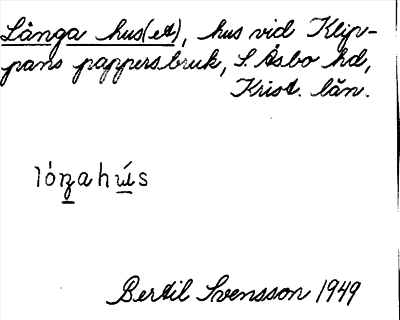 Långa hus(et), hus vid Klip-
pans pappersbruk, S. Åsbo hd,
Krist. län.
lóŋahús
Bertil Svensson 1949